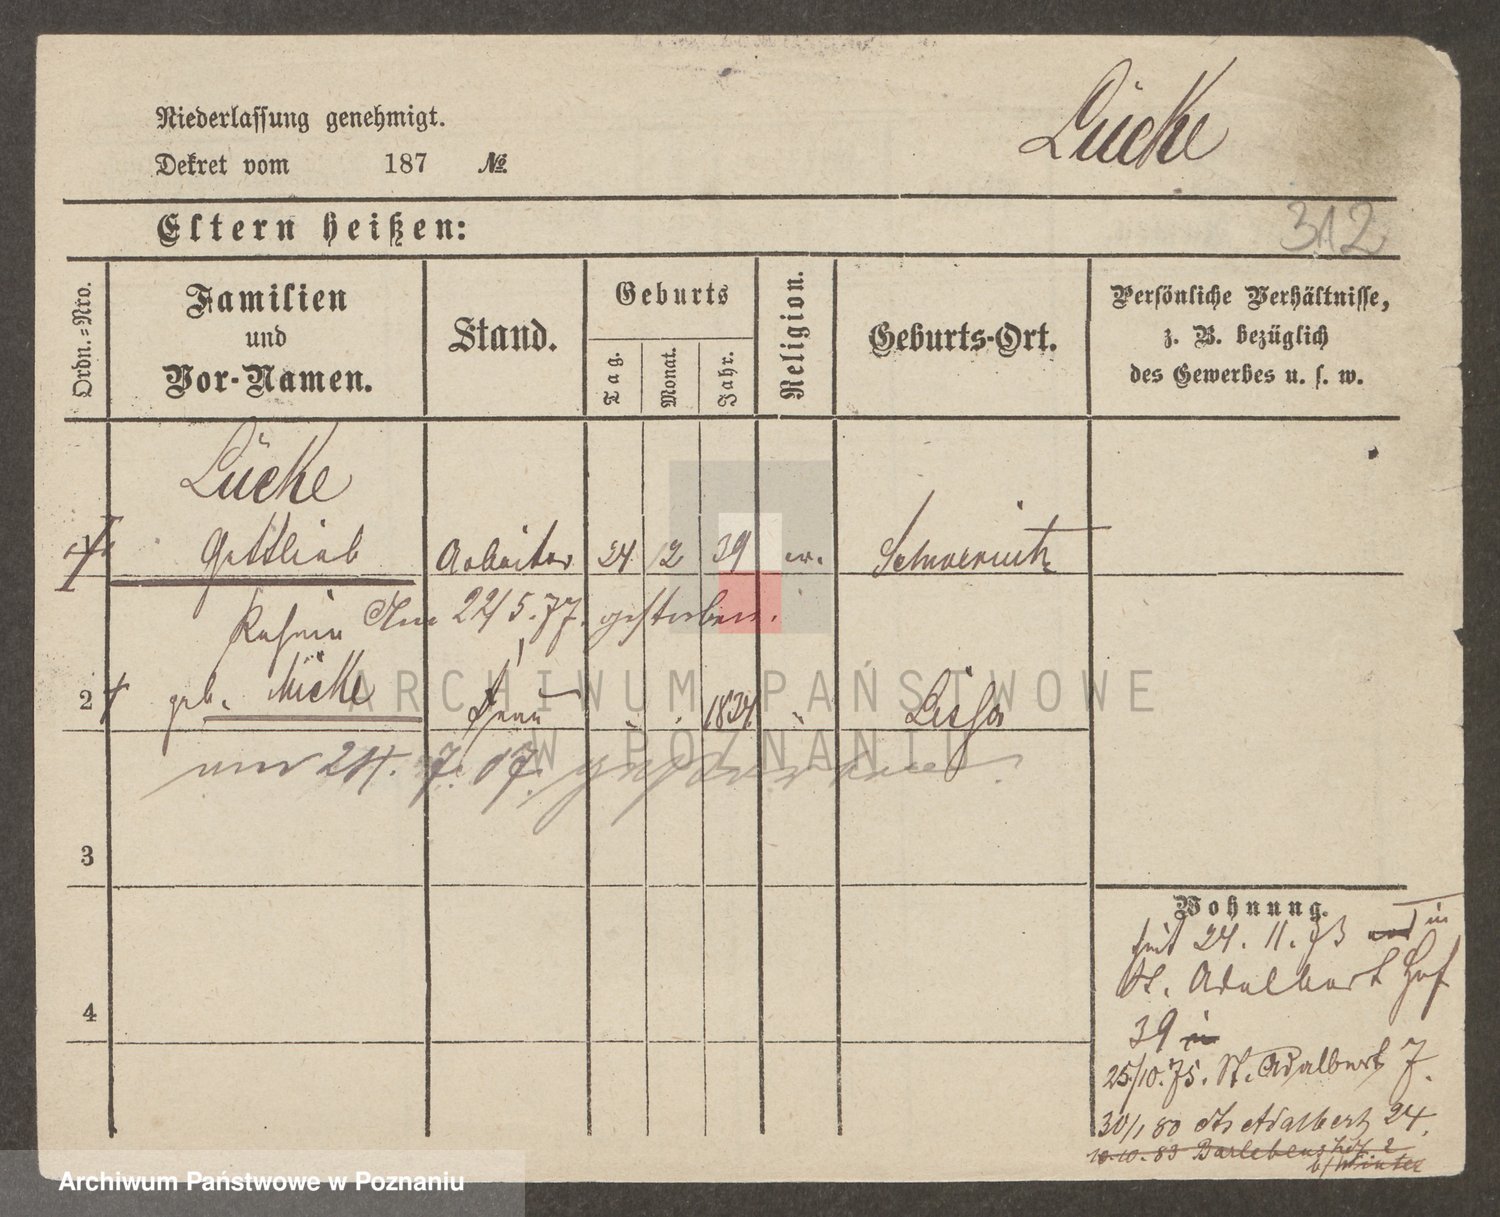 Niederlassung genehmigt.
Dekret vom 187 №
Lücke
Eltern heißen:
312
Ordn.-Nro.
Familien
und
Vor-Namen.
Stand.
Geburts
Tag.
Monat.
Jahr.
Religion.
Geburts-Ort.
Persönliche Verhältnisse,
z. B. bezüglich
des Gewerbes u. s. w.
Lücke
Gottlieb Arbeiter 24 2 39 ev.
Am 22/5. 77. gestorben.
2 geb. Mücke Frau 1834 Lissa
am 24. 7. 07. gestorben.
3
4
Wohnung.
seit 24. 11. 73 in
St. Adalbert Hof
39
25/10. 75. St. Adalbert 7.
30/1 80 St Adalbert 24.
10.10.83 Barlebenshof 2
b/ Winter
ARCHIWUM PAŃSTWOWE
W POZNANIU
Archiwum Państwowe w Poznaniu